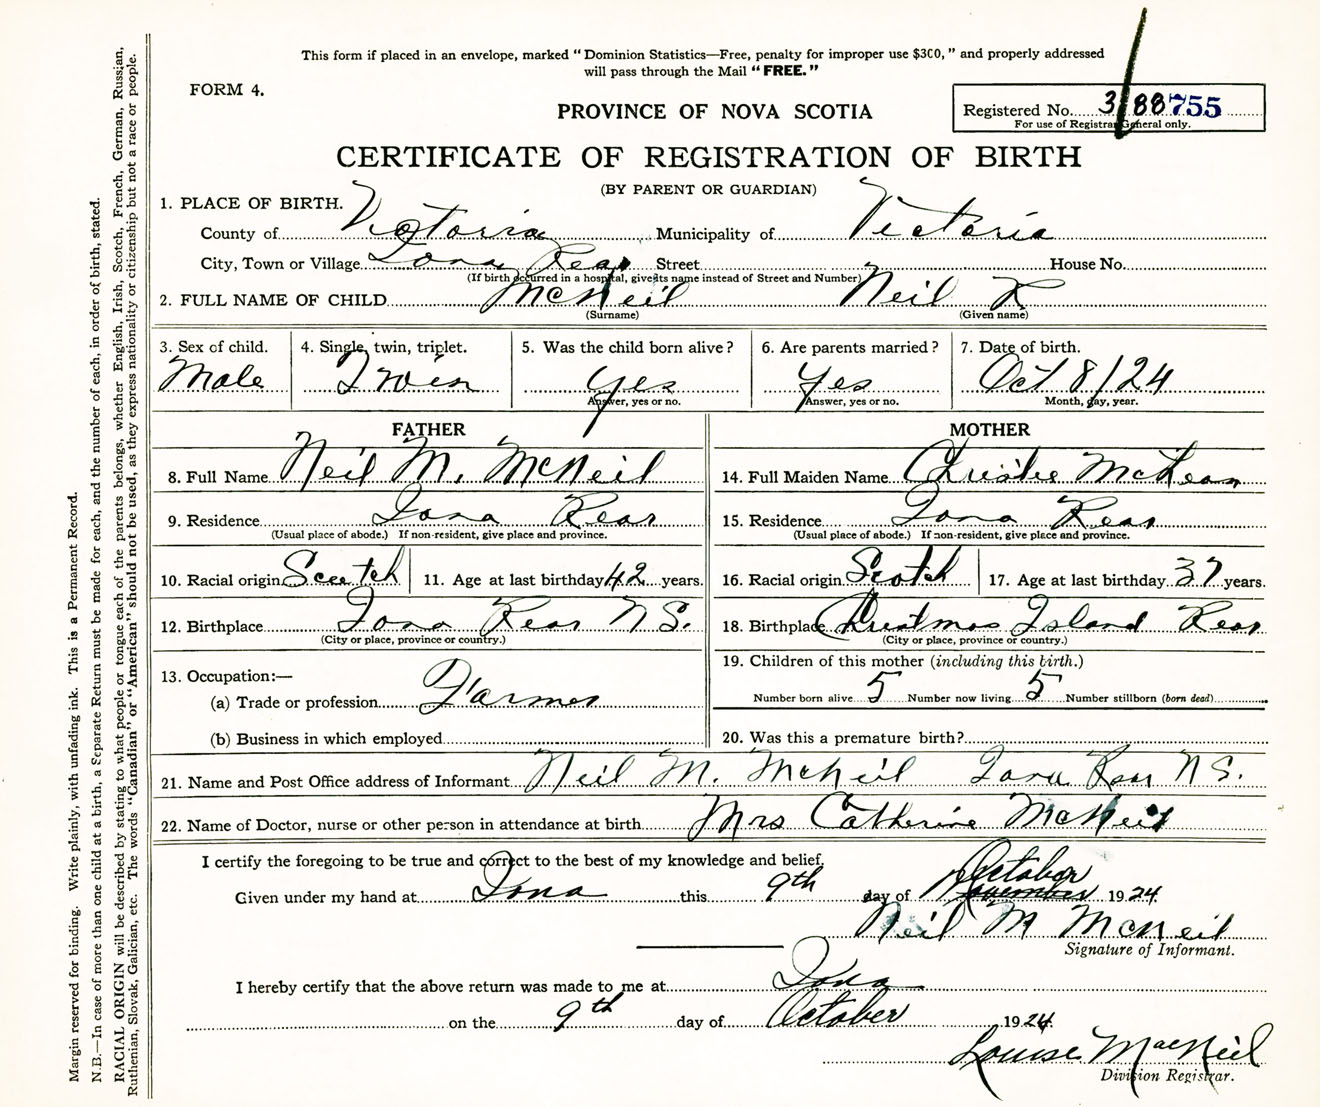 This form if placed in an envelope, marked "Dominion Statistics—Free, penalty for improper use $300," and properly addressed
will pass through the Mail "FREE."
FORM 4.
PROVINCE OF NOVA SCOTIA
Registered No. 3188755
For use of Registrar General only.
CERTIFICATE OF REGISTRATION OF BIRTH
(BY PARENT OR GUARDIAN)
1. PLACE OF BIRTH.
County of Victoria Municipality of Victoria
City, Town or Village Iona Rear Street House No.
(If birth occurred in a hospital, give its name instead of Street and Number)
2. FULL NAME OF CHILD McNeil Neil
(Surname) (Given name)
3. Sex of child. 4. Single, twin, triplet. 5. Was the child born alive? 6. Are parents married? 7. Date of birth.
Male Twin Yes Yes Oct 8/24
Answer, yes or no. Answer, yes or no. Month, day, year.
FATHER MOTHER
8. Full Name Neil M. McNeil 14. Full Maiden Name Christie McLean
9. Residence Iona Rear 15. Residence Iona Rear
(Usual place of abode.) If non-resident, give place and province. (Usual place of abode.) If non-resident, give place and province.
10. Racial origin Scotch 11. Age at last birthday 42 years. 16. Racial origin Scotch 17. Age at last birthday 37 years.
12. Birthplace Iona Rear N S. 18. Birthplace Christmas Island Rear
(City or place, province or country.) (City or place, province or country.)
13. Occupation:— 19. Children of this mother (including this birth.)
(a) Trade or profession Farmer Number born alive 5 Number now living 5 Number stillborn (born dead)
(b) Business in which employed 20. Was this a premature birth?
21. Name and Post Office address of Informant Neil M. McNeil Iona Rear N S.
22. Name of Doctor, nurse or other person in attendance at birth Mrs Catherine McNeil
I certify the foregoing to be true and correct to the best of my knowledge and belief.
October
Given under my hand at Iona this 9th day of November 1924
Neil M McNeil
Signature of Informant.
I hereby certify that the above return was made to me at Iona
on the 9th day of October 1924.
Louise MacNeil
Division Registrar.
Margin reserved for binding. Write plainly, with unfading ink. This is a Permanent Record.
N.B.—In case of more than one child at a birth, a Separate Return must be made for each, and the number of each, in order of birth, stated.
RACIAL ORIGIN will be described by stating to what people or tongue each of the parents belongs, whether English, Irish, Scotch, French, German, Russian,
Ruthenian, Slovak, Galician, etc. The words "Canadian" or "American" should not be used, as they express nationality or citizenship but not a race or people.